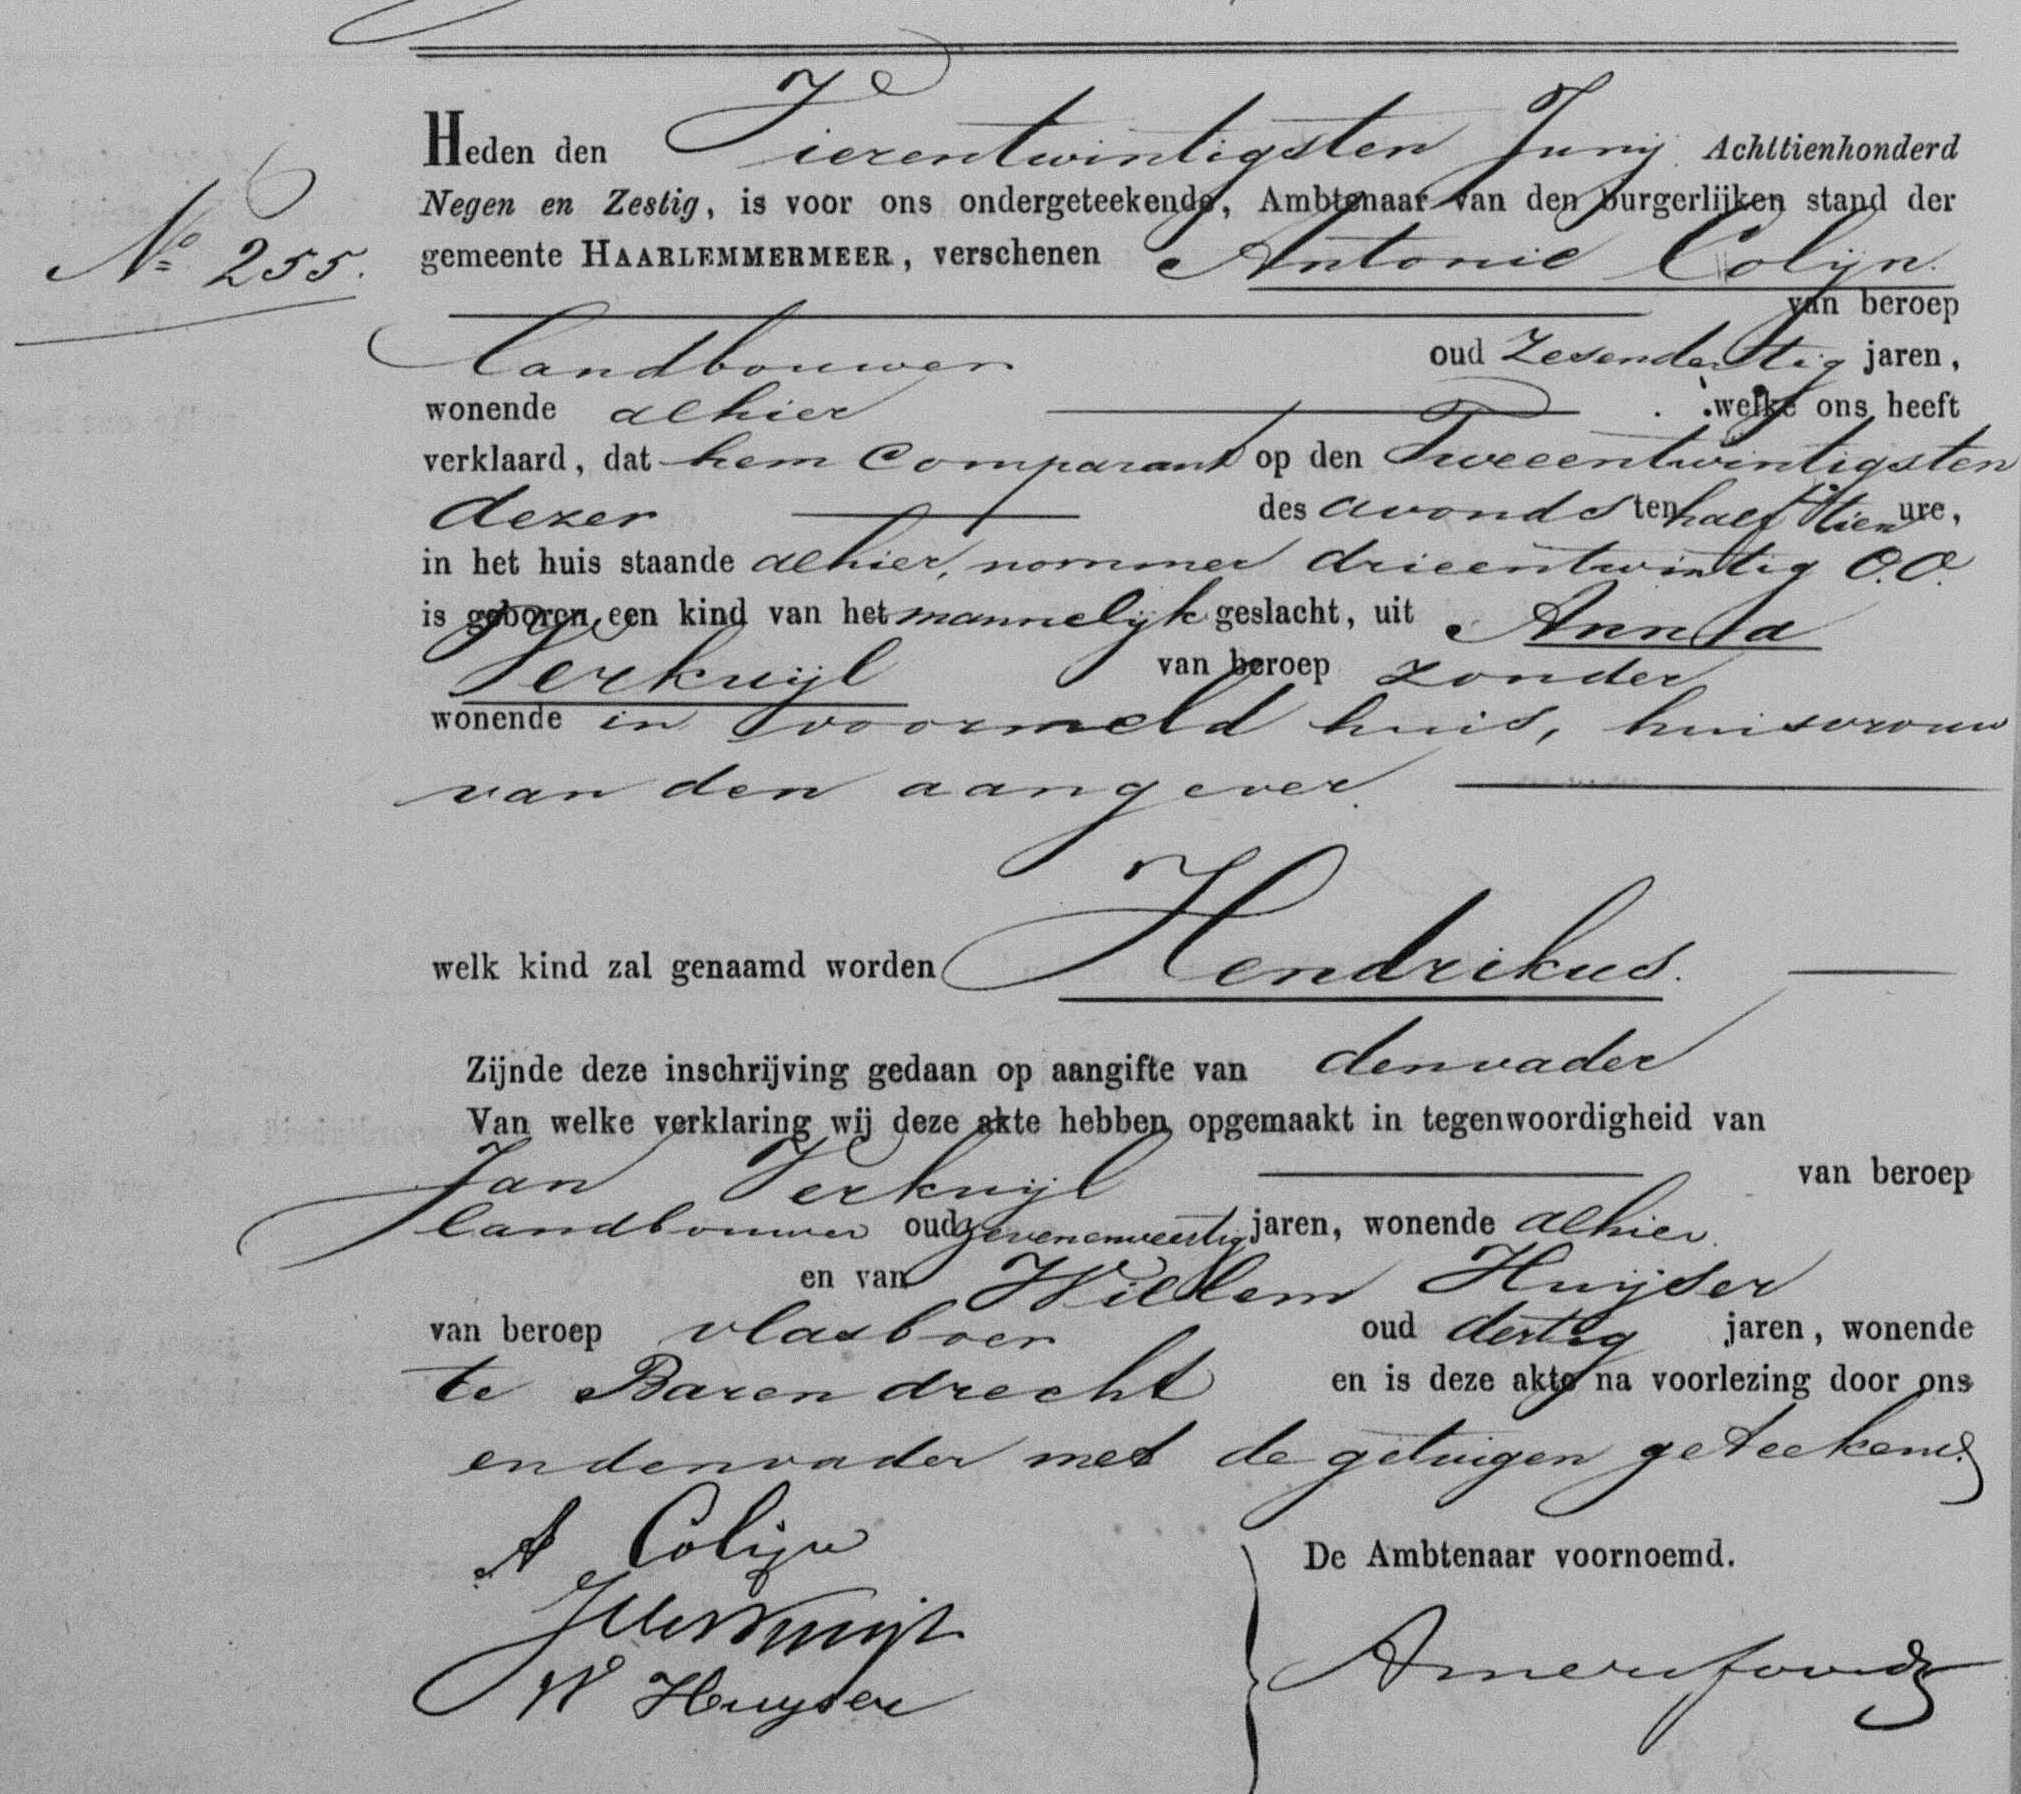 Heden den Vierentwintigsten Junij Achttienhonderd
Negen en Zestig, is voor ons ondergeteekende, Ambtenaar van den burgerlijken stand der
Nº 255.
gemeente HAARLEMMERMEER, verschenen Antonie Colijn.
van beroep
landbouwer oud zesendertig jaren,
wonende alhier welke ons heeft
verklaard, dat hem Comparant op den Tweeentwintigsten
dezer des avonds ten half tien ure,
in het huis staande alhier, nommer drieentwintig O.O.
is geboren een kind van het mannelijk geslacht, uit Anna
Verkuijl van beroep zonder
wonende in voormeld huis, huisvrouw
van den aangever
welk kind zal genaamd worden Hendrikus.
Zijnde deze inschrijving gedaan op aangifte van den vader
Van welke verklaring wij deze akte hebben opgemaakt in tegenwoordigheid van
Jan Verkuijl van beroep
landbouwer oud zevenenveertig jaren, wonende alhier.
en van Willem Huijser
van beroep vlasboer oud dertig jaren, wonende
te Barendrecht en is deze akte na voorlezing door ons
en den vader met de getuigen geteekend.
A Colijn
De Ambtenaar voornoemd.
J Verkuijl
Amersfoordt
W Huyser